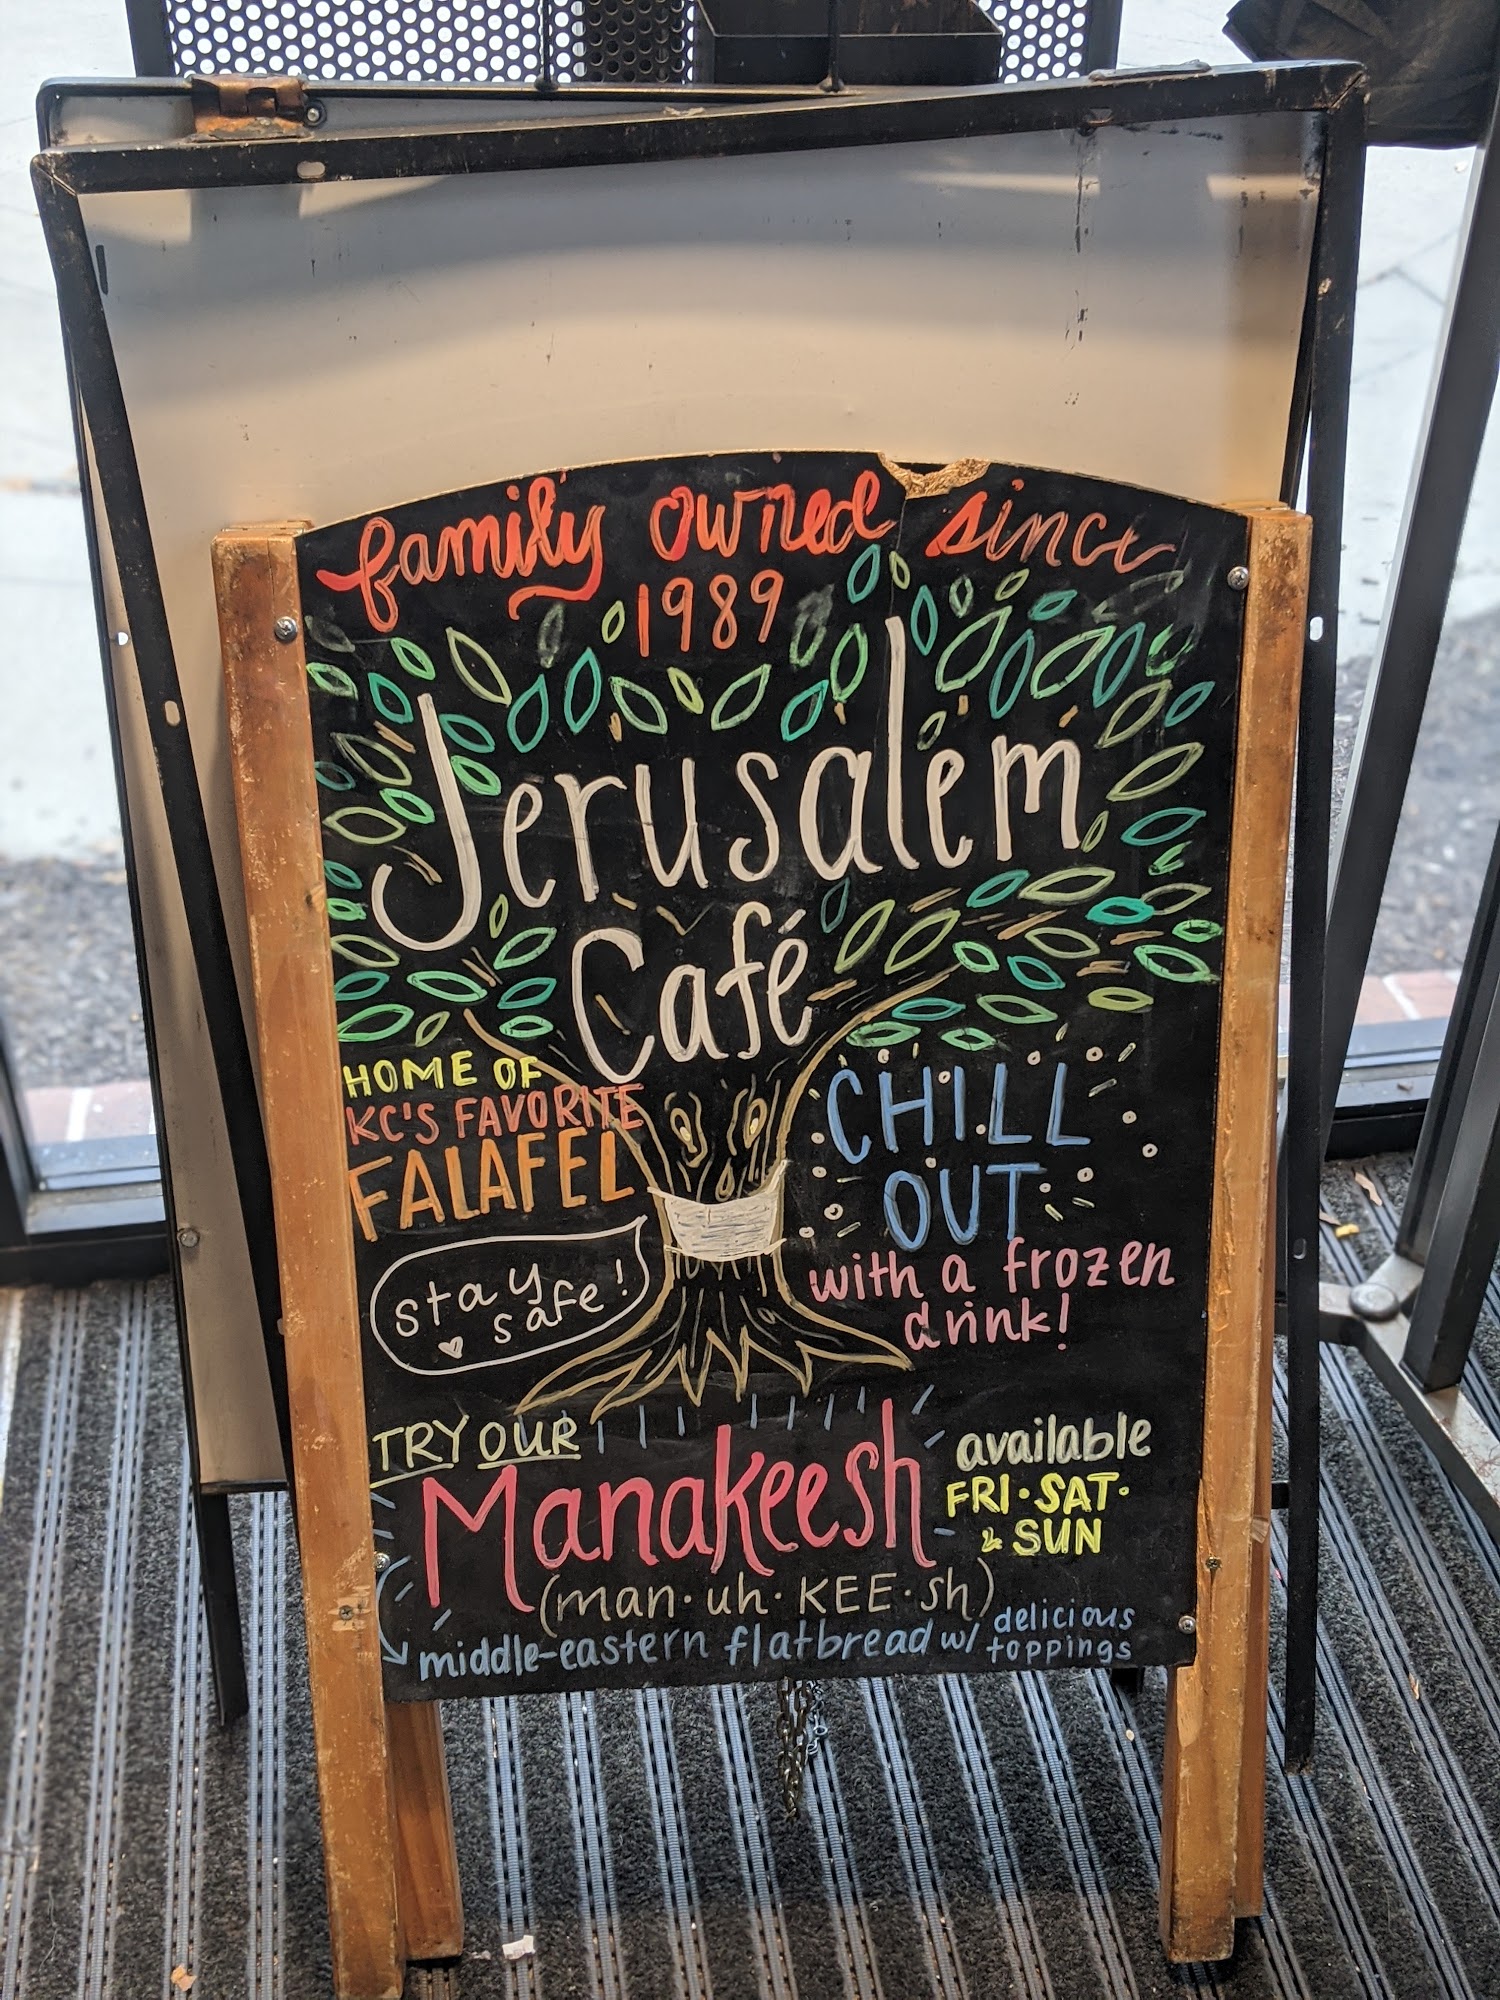 family owned since
1989
Jerusalem
Café
HOME OF
KC'S FAVORITE
FALAFEL
stay
safe!
CHILL
OUT
with a frozen
drink!
TRY OUR
Manakeesh
available
FRI·SAT·
& SUN
(man·uh·KEE·sh)
middle-eastern flatbread w/ delicious
toppings